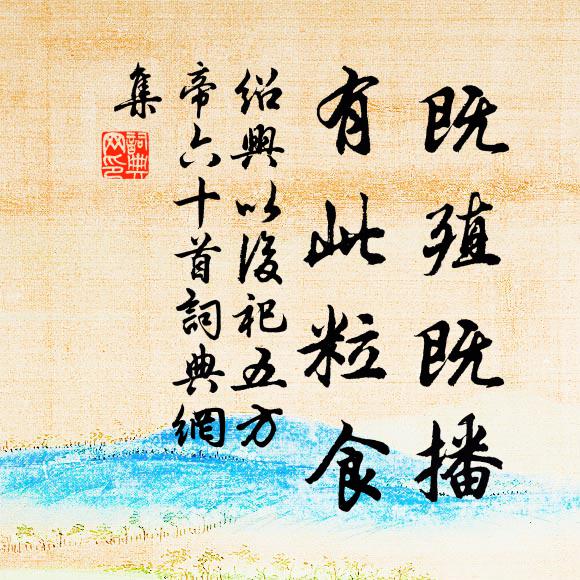 既殖既播
有此粒食
紹興以後祀五方
帝六十首詞典網
集
詞典網印